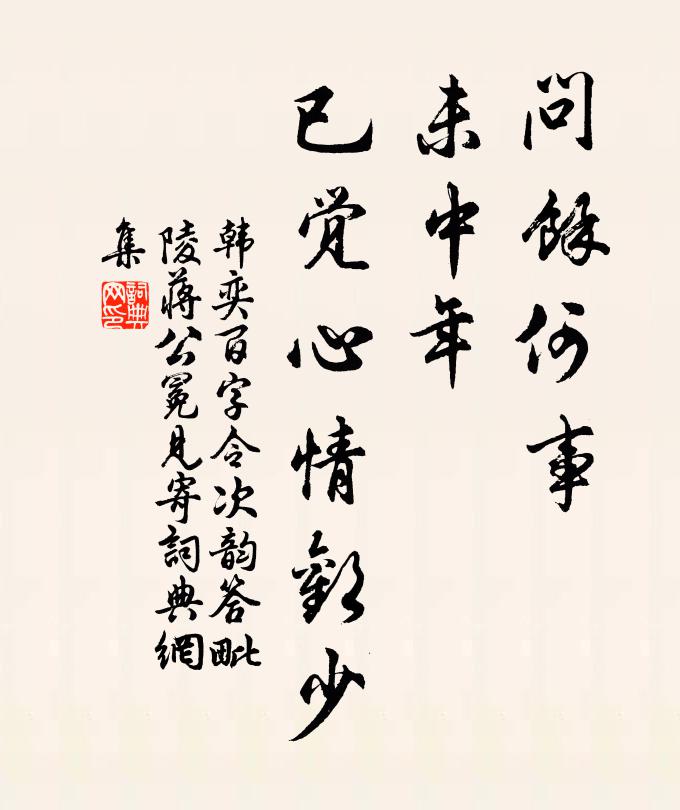 問餘何事
未中年
已觉心情歡少
韩奕百字令次韵答毗
陵蒋公冕见寄詞典網
集
詞典
网印